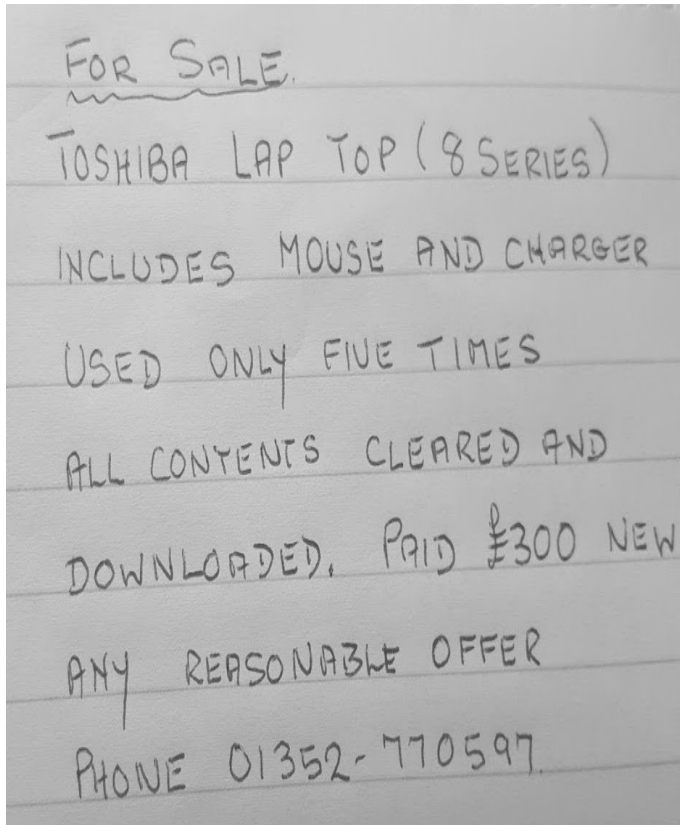 FOR SALE.
TOSHIBA LAP TOP (8 SERIES)
INCLUDES MOUSE AND CHARGER
USED ONLY FIVE TIMES
ALL CONTENTS CLEARED AND
DOWNLOADED. PAID £300 NEW
ANY REASONABLE OFFER
PHONE 01352-770597.